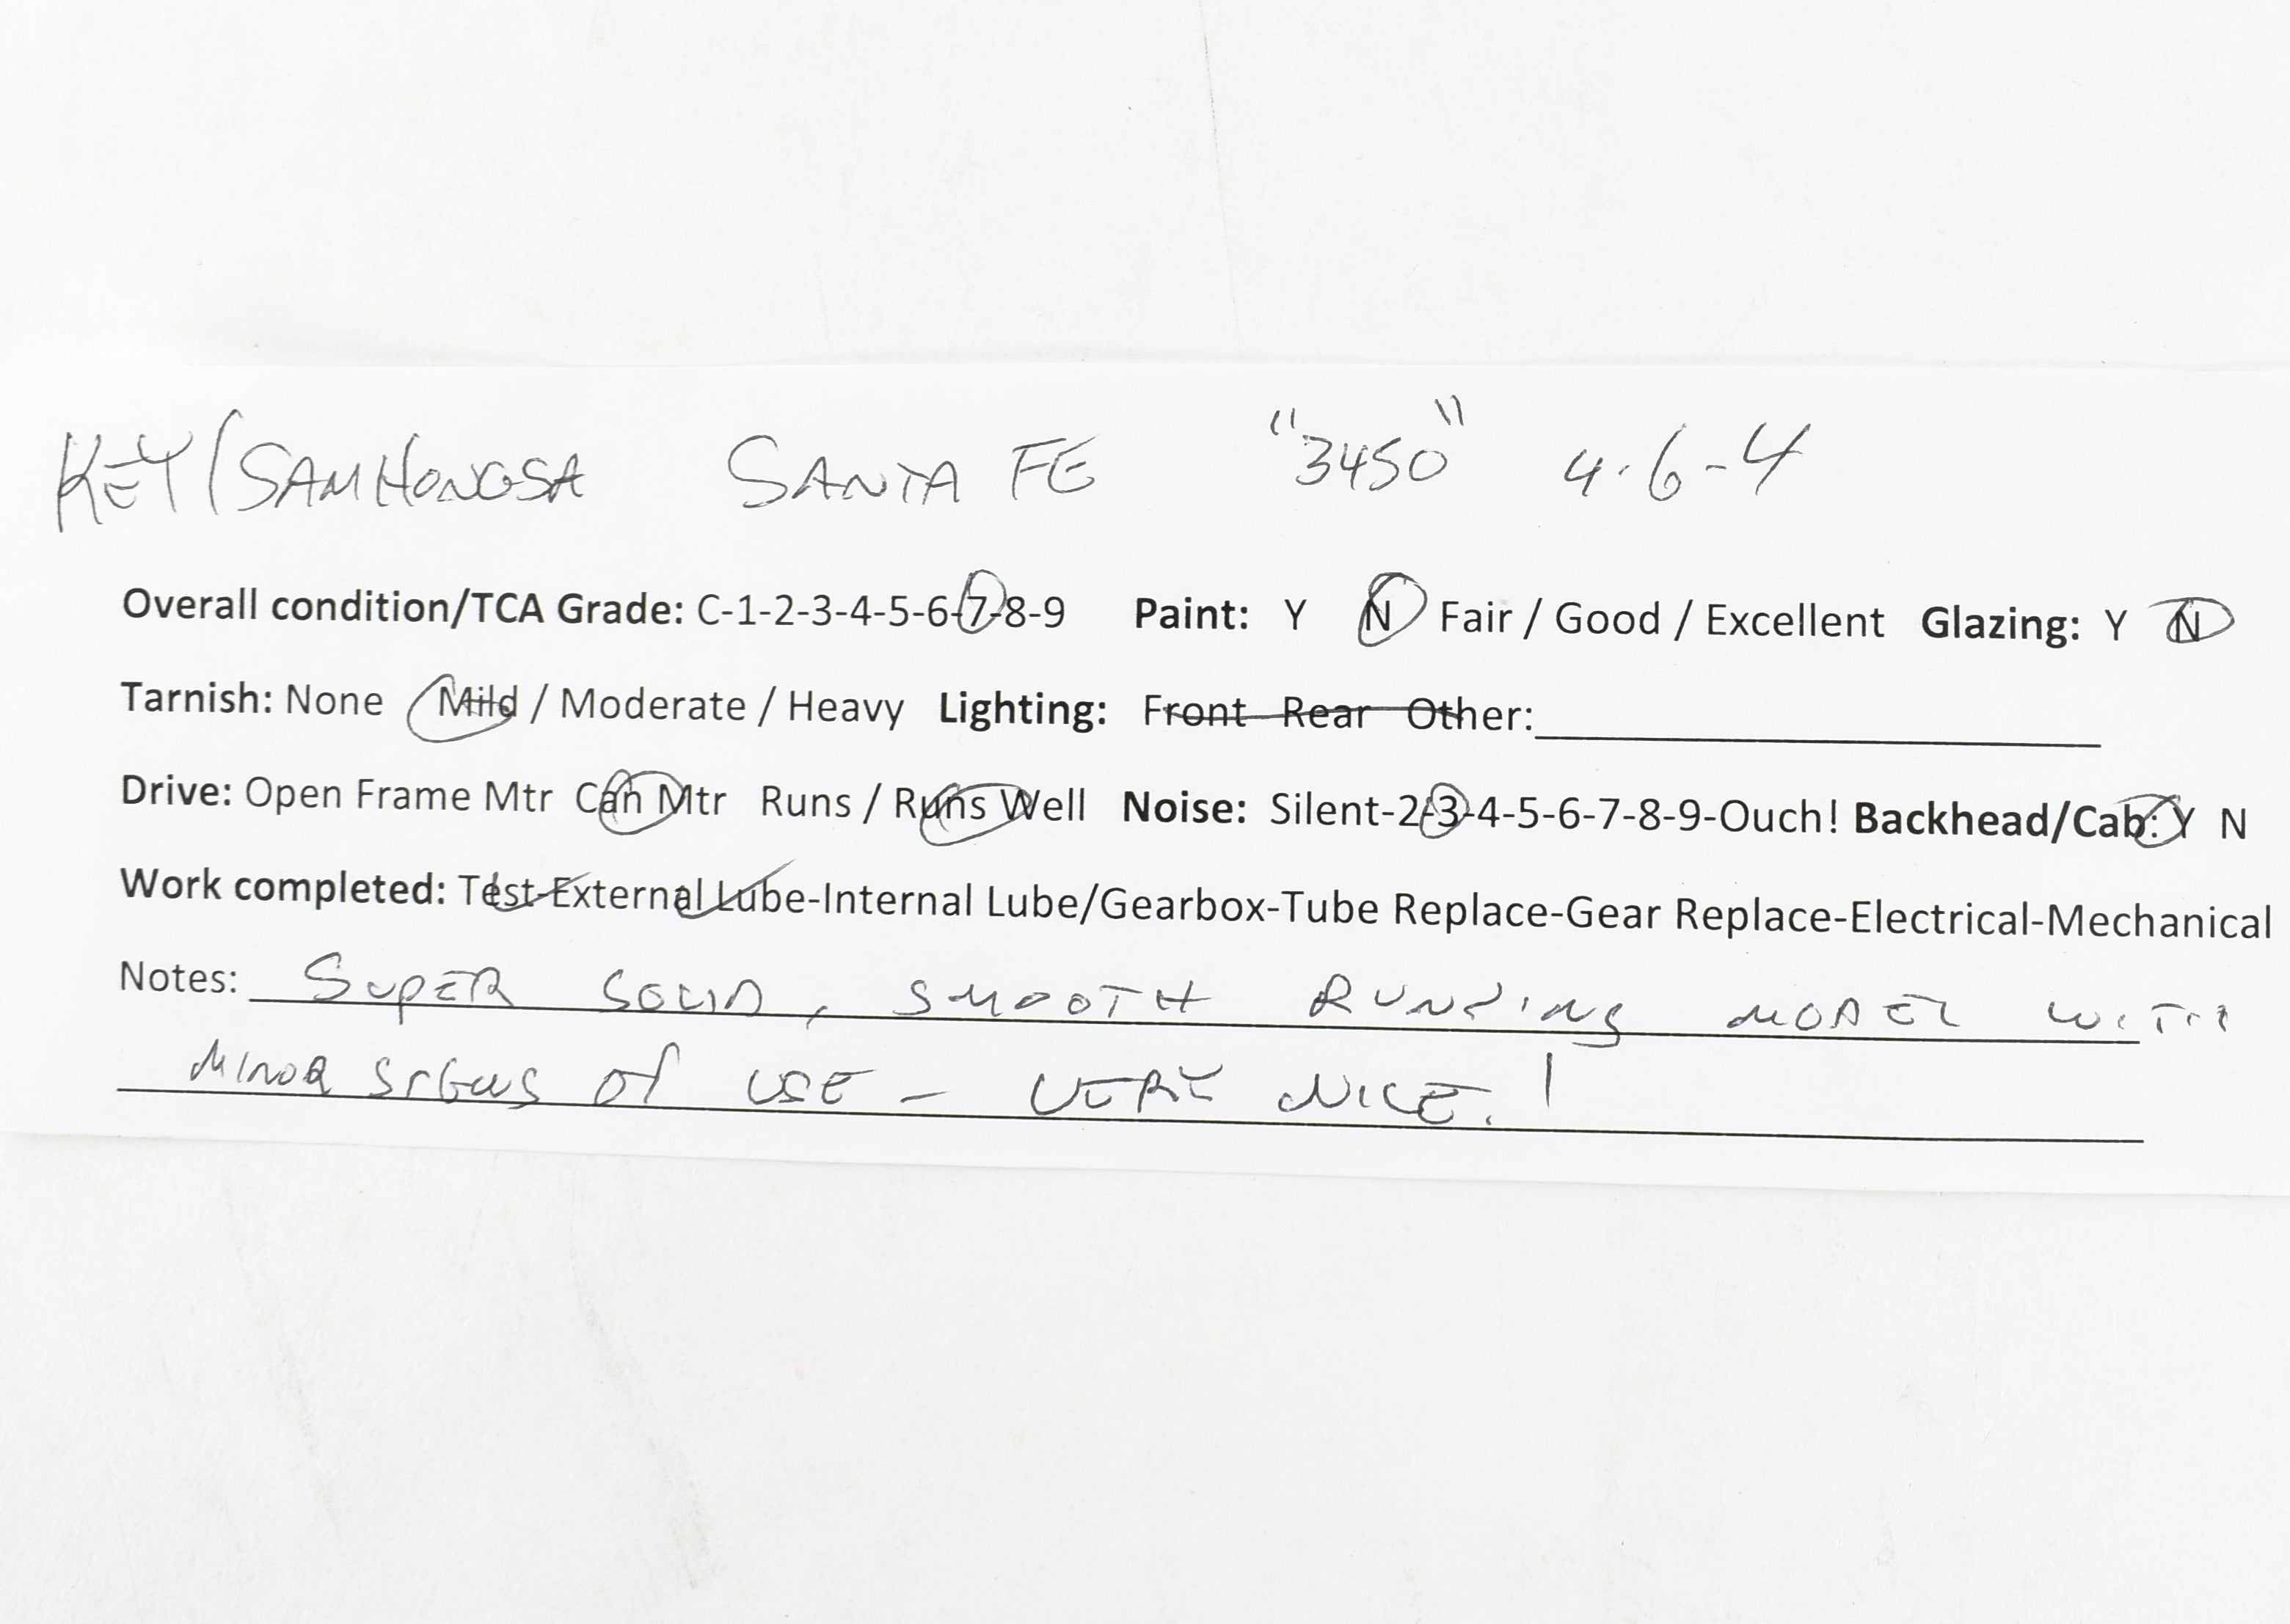 KEY/SAMHONGSA SANTA FE "3450" 4-6-4
Overall condition/TCA Grade: C-1-2-3-4-5-6-7-8-9 Paint: Y N Fair / Good / Excellent Glazing: Y N
Tarnish: None Mild / Moderate / Heavy Lighting: Front Rear Other:
Drive: Open Frame Mtr Can Mtr Runs / Runs Well Noise: Silent-2-3-4-5-6-7-8-9-Ouch! Backhead/Cab: Y N
Work completed: Test-External Lube-Internal Lube/Gearbox-Tube Replace-Gear Replace-Electrical-Mechanical
Notes: SUPER SOLID, SMOOTH RUNNING MODEL WITH
MINOR SIGNS OF USE - VERY NICE!